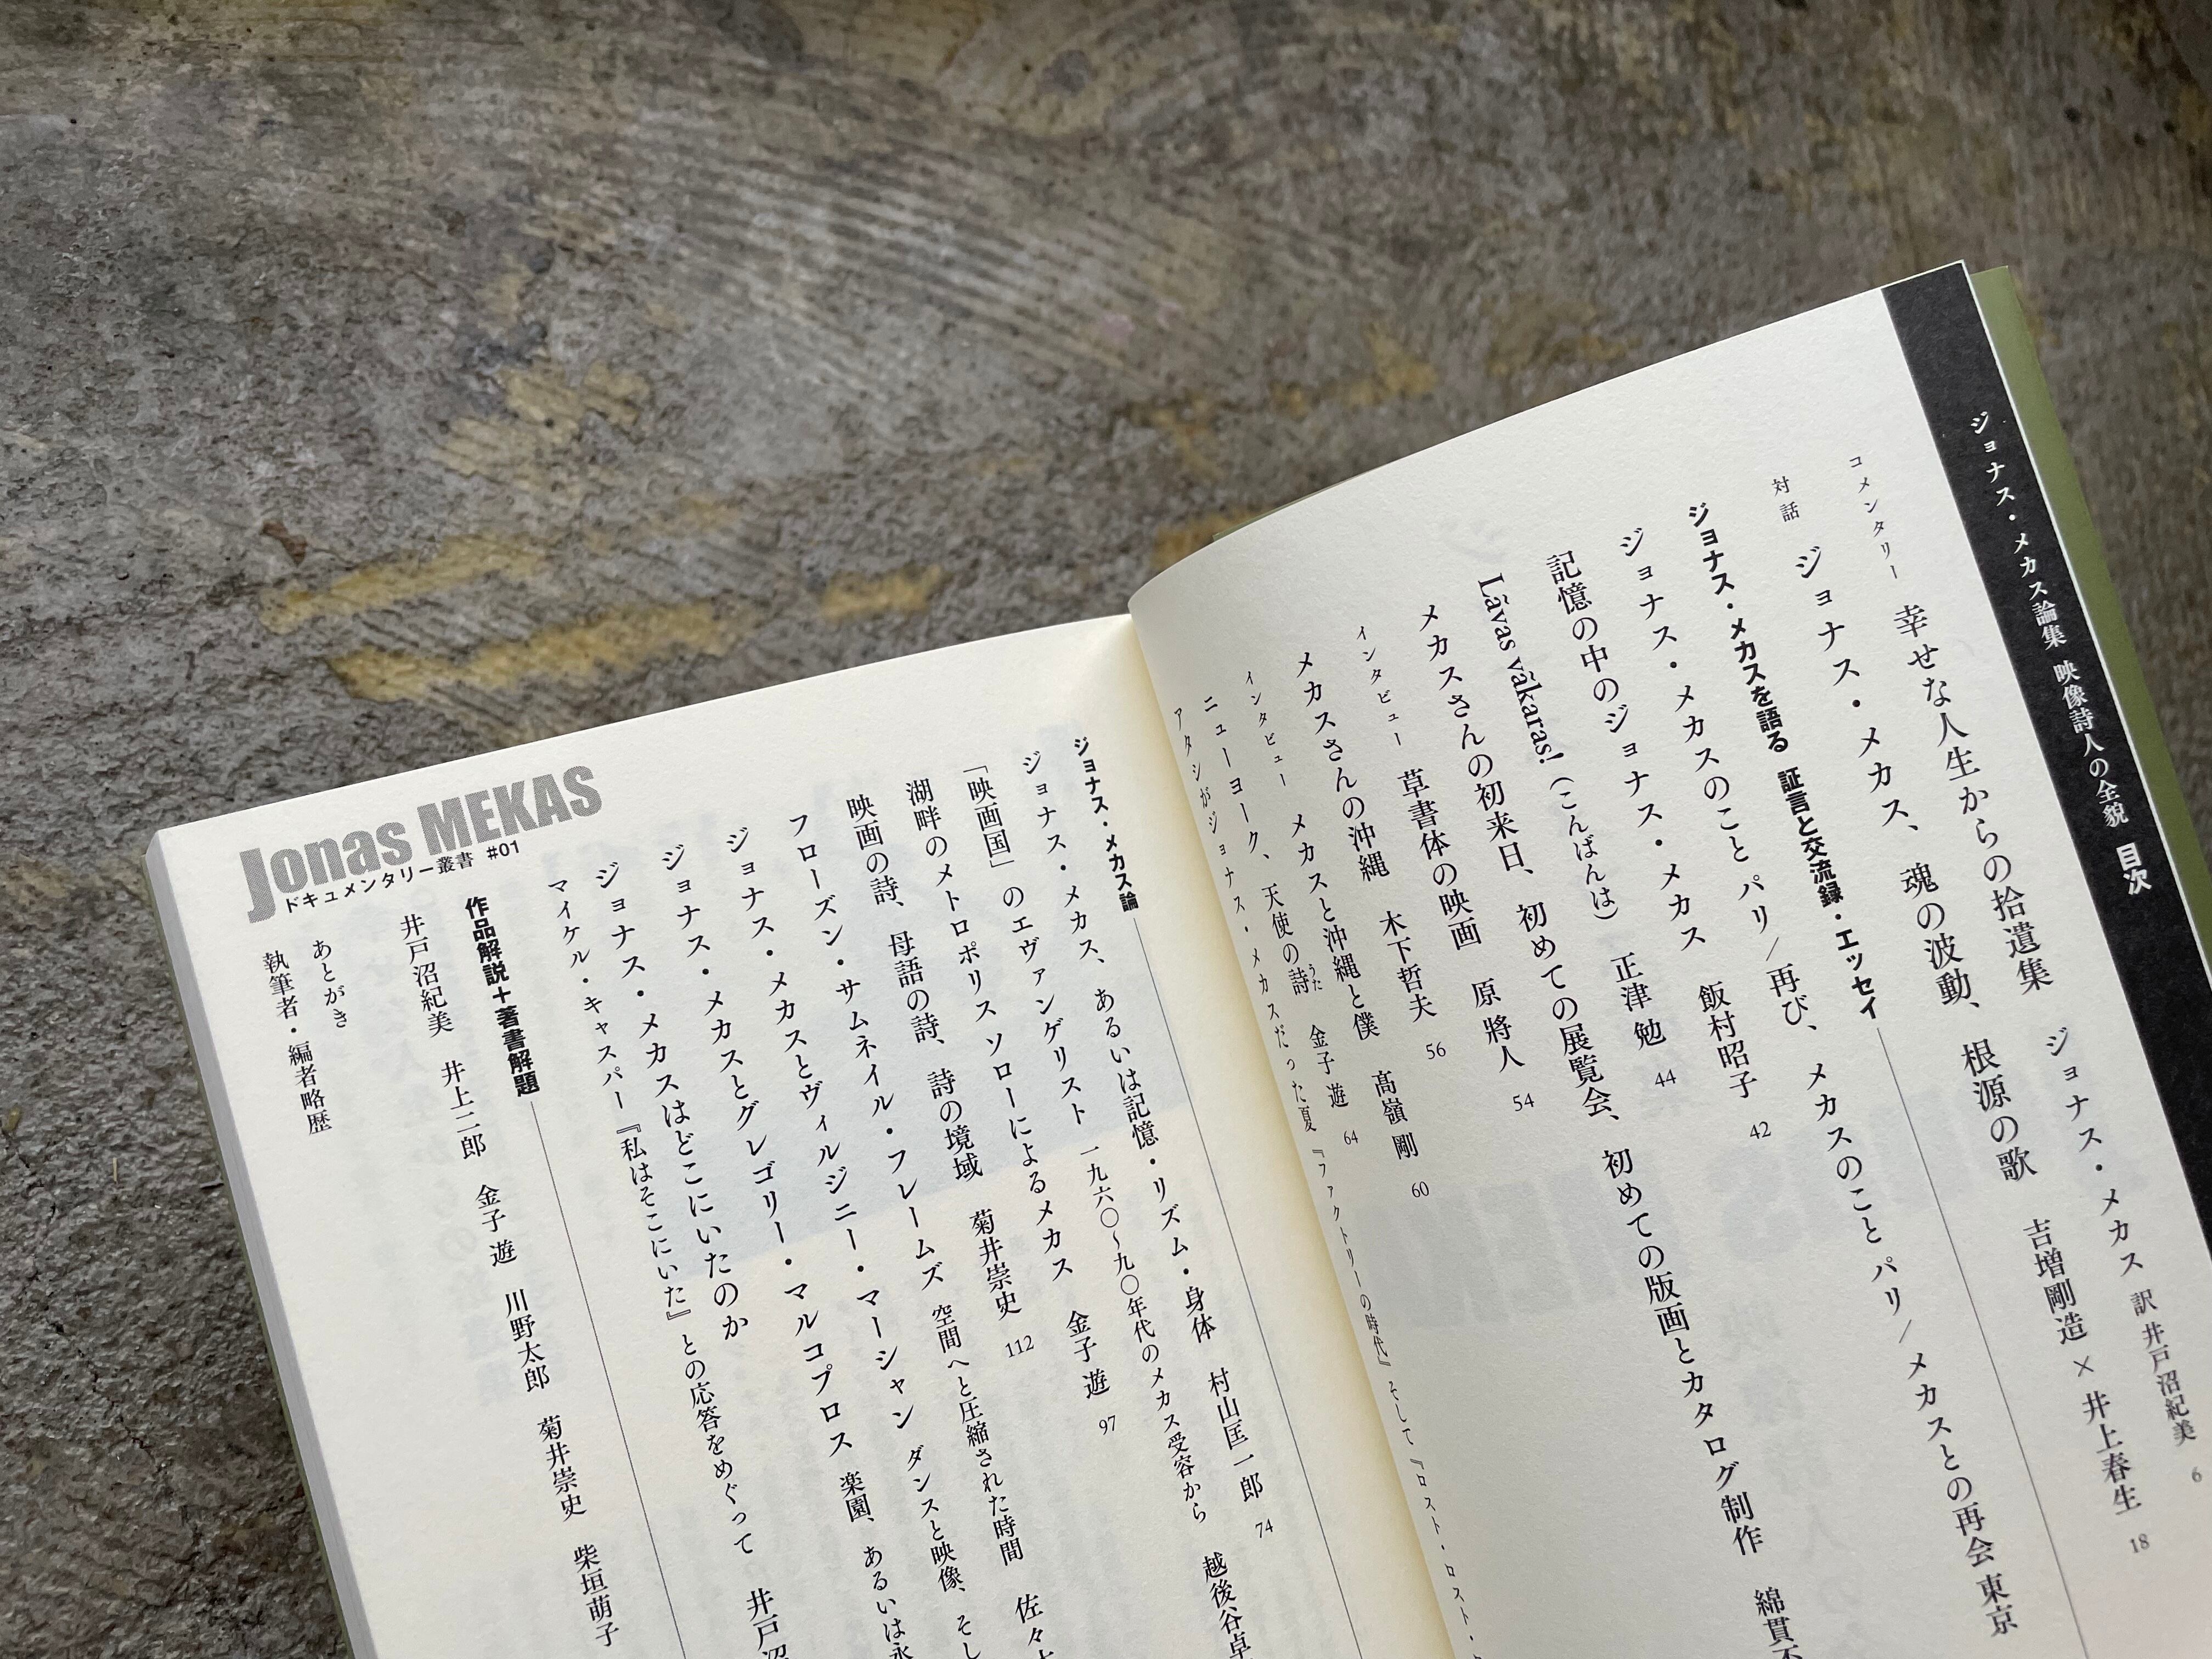 ジョナス・メカス論集 映像詩人の全貌 目次
コメンタリー 幸せな人生からの拾遺集 ジョナス・メカス 訳 井戸沼紀美 6
対話 ジョナス・メカス、魂の波動、根源の歌 吉増剛造×井上春生 18
ジョナス・メカスを語る 証言と交流録・エッセイ
ジョナス・メカスのこと パリ/再び、メカスのこと パリ/メカスとの再会 東京
飯村昭子 42
記憶の中のジョナス・メカス 正津 勉 44
Lāvas vākaras!(こんばんは) 初めての展覧会、初めての版画とカタログ制作 綿貫不
メカスさんの初来日、 原 將人 54
インタビュー 草書体の映画 木下哲夫 56
メカスさんの沖縄 髙嶺 剛 60
インタビュー メカスと沖縄と僕
ニューヨーク、天使の詩 うた 金子 遊 64
アタシがジョナス・メカスだった夏 『ファクトリーの時代』そして『ロスト・ロスト・
ジョナス・メカス論
ジョナス・メカス、あるいは記憶・リズム・身体 村山匡一郎 74
「映画国」のエヴァンゲリスト 一九六〇〜九〇年代のメカス受容から 越後谷卓
湖畔のメトロポリス ソローによるメカス 金子 遊 97
映画の詩、母語の詩、詩の境域 菊井崇史 112
フローズン・サムネイル・フレームズ 空間へと圧縮された時間 佐々
ジョナス・メカスとヴィルジニー・マーシャン ダンスと映像、そし
ジョナス・メカスとグレゴリー・マルコプロス 楽園、あるいは永
ジョナス・メカスはどこにいたのか
マイケル・キャスパー『私はそこにいた』との応答をめぐって 井戸沼
作品解説+著書解題
井戸沼紀美 井上二郎 金子 遊 川野太郎 菊井崇史 柴垣萌子
あとがき
執筆者・編者略歴
Jonas MEKAS
ドキュメンタリー叢書 #01